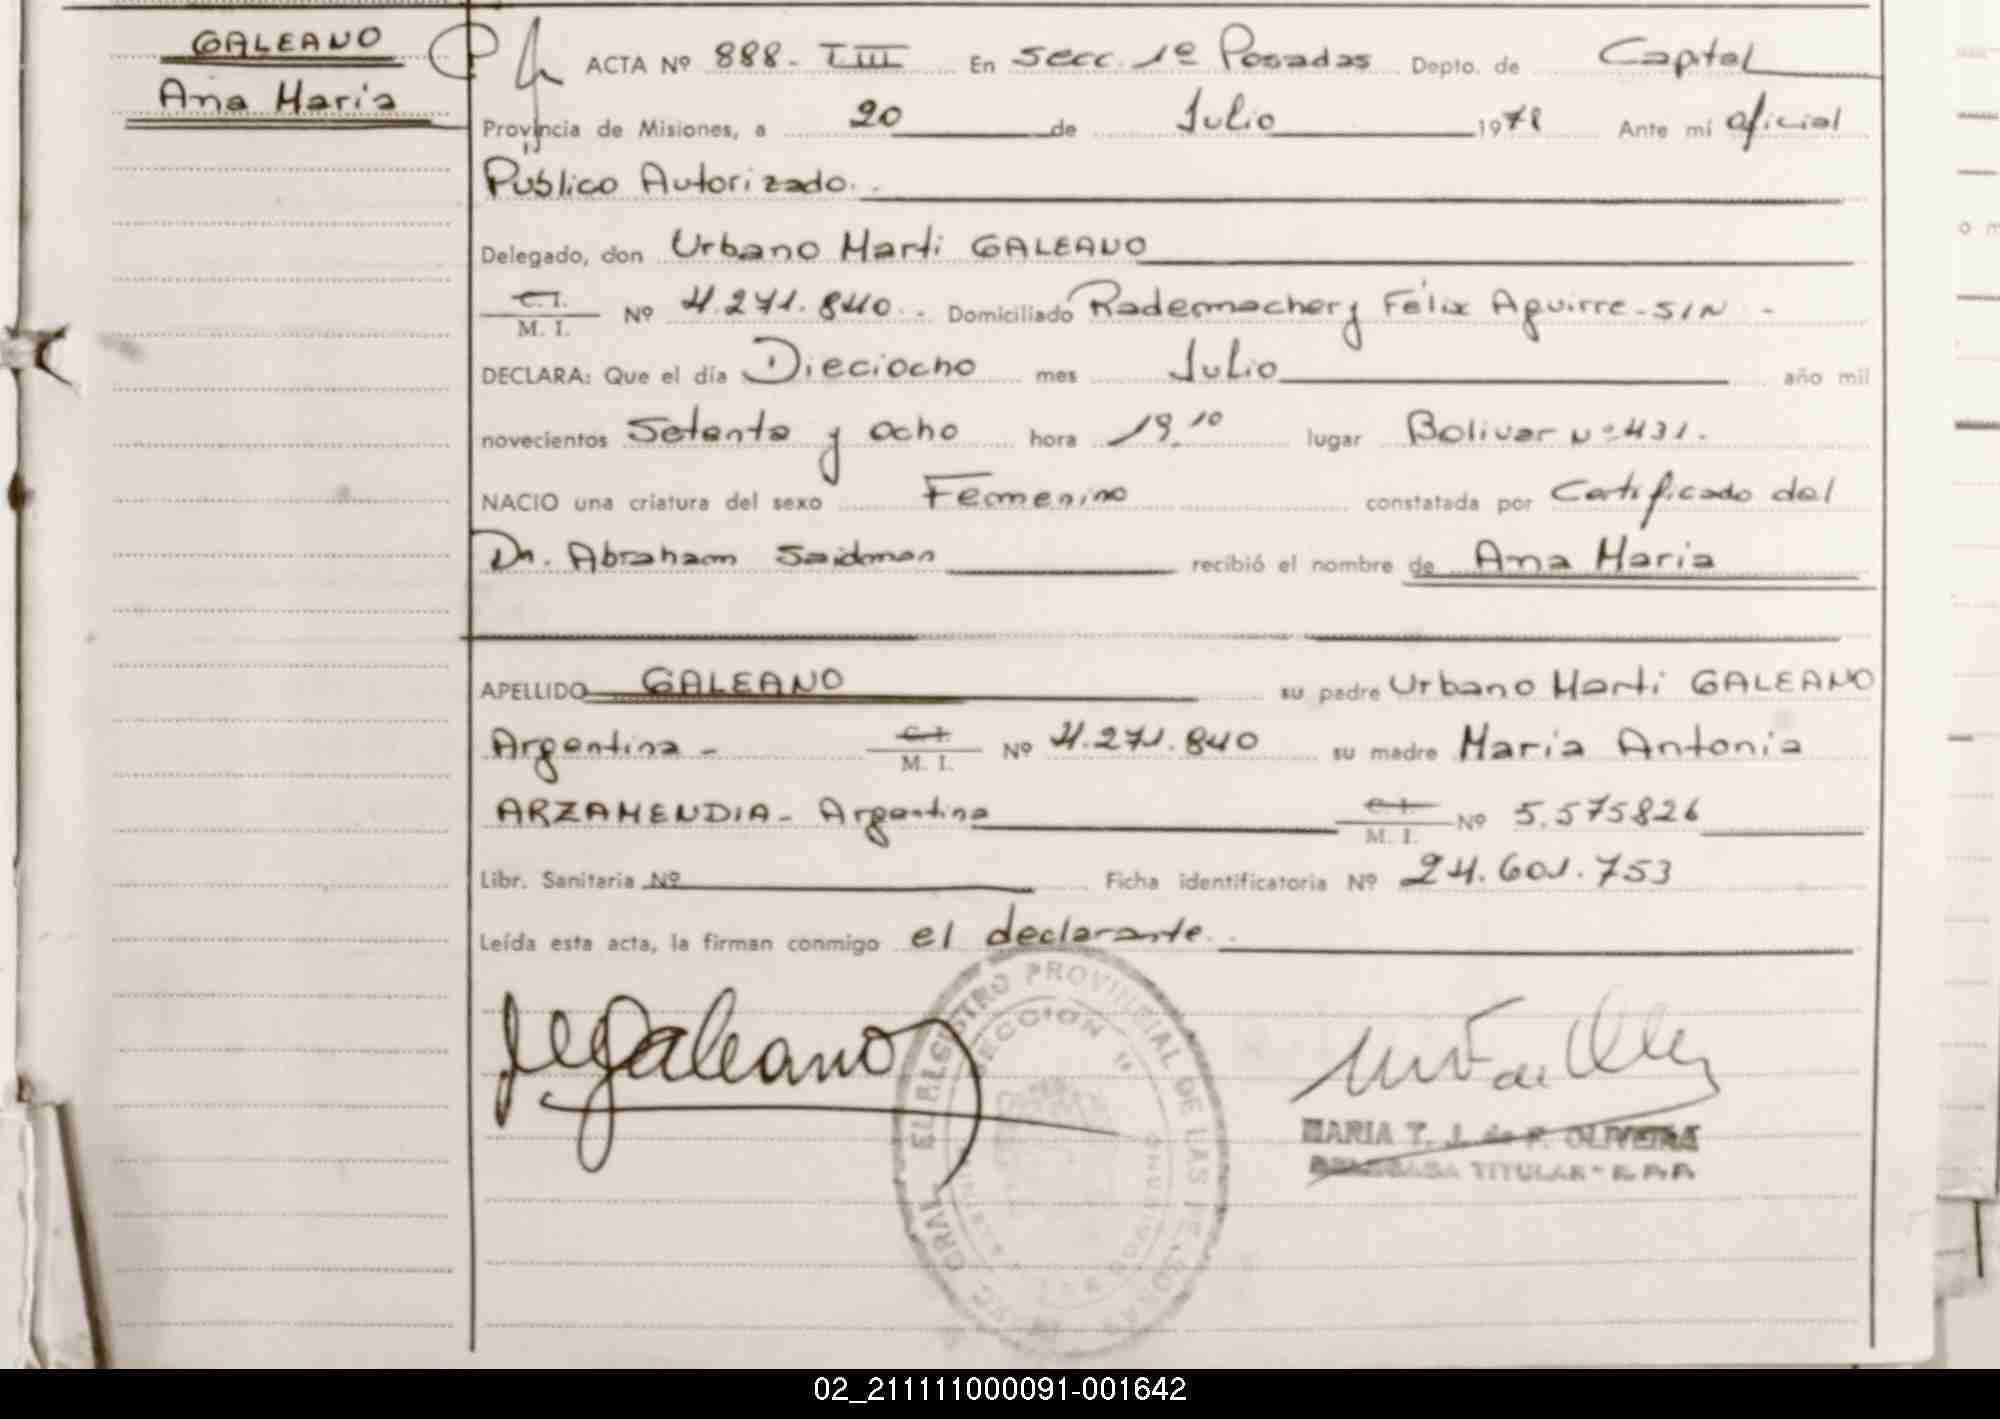 GALEANO
Ana Maria
ACTA Nº 888- T III En Secc. 1º Posadas Depto. de Capital
Provincia de Misiones, a 20 de Julio 1978 Ante mí oficial
Público Autorizado.
Delegado, don Urbano Marti GALEANO
C.I. M. I. Nº 4.271.840.- Domiciliado Rademacher y Félix Aguirre - S/N -
DECLARA: Que el día Dieciocho mes Julio año mil
novecientos Setenta y ocho hora 19,10 lugar Bolivar Nº 431.
NACIO una criatura del sexo Femenino constatada por Certificado del
Dr. Abraham Saidman recibió el nombre de Ana Maria
APELLIDO GALEANO su padre Urbano Marti GALEANO
Argentina - C.I. M. I. Nº 4.271.840 su madre Maria Antonia
ARZAMENDIA - Argentina C.I. M. I. Nº 5.575826
Libr. Sanitaria Nº Ficha identificatoria Nº 24.601.753
Leída esta acta, la firman conmigo el declarante.
Galeano
REGISTRO PROVINCIAL DE LAS PERSONAS
SECCION
MARIA T. J. de F. OLIVEIRA
DELEGADA TITULAR - R.P.P.
02_211111000091-001642